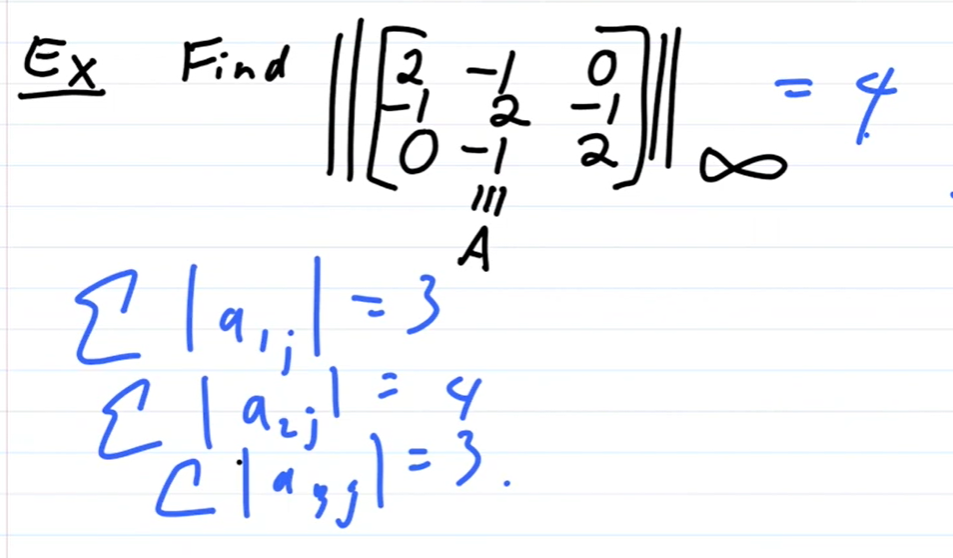 Ex Find ‖[2 -1 0
-1 2 -1
0 -1 2]‖∞ = 4
≡
A
Σ |a₁ⱼ| = 3
Σ |a₂ⱼ| = 4
Σ |a₃ⱼ| = 3.